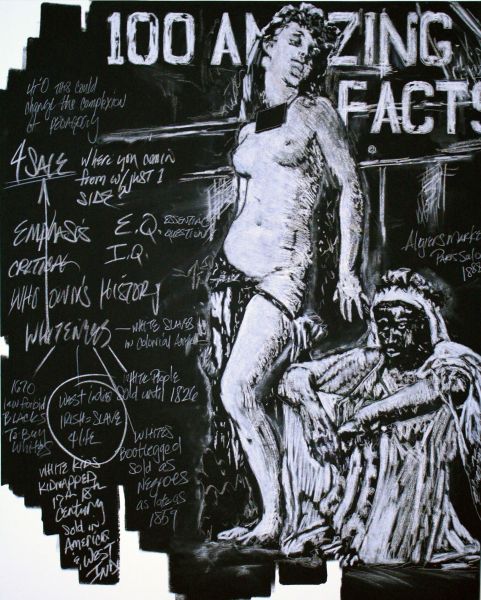 100 AMAZING
FACTS
this could
change the complexion
of PEDAGOGY
4 SALE
where you comin
from w/ just 1
SIDE?
EMPHASIS
CRITICAL
E.Q. ESSENTIAL
QUESTION
I.Q
WHO OWNS HISTORY
WHITENESS
— WHITE SLAVES
in colonial
Algiers Market
Paris Salon
1670
law forbid
BLACKS
To Buy
WHITES
WEST INDIES
IRISH = SLAVE
4 LIFE
WHITE PEOPLE
Sold until 1826
WHITES
Bootlegged
sold as
NEGROES
as late as
1859
WHITE KIDS
KIDNAPPED
17th 18th
Century
Sold in
America
& WEST
IND